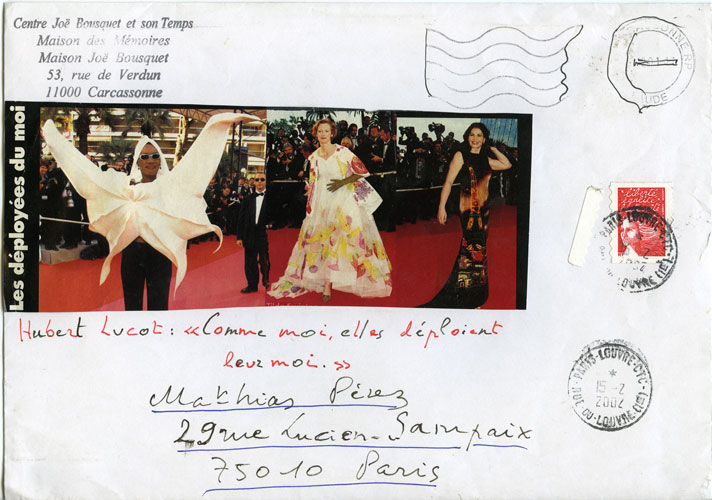 Centre Joë Bousquet et son Temps
Maison des Mémoires
Maison Joë Bousquet
53, rue de Verdun
11000 Carcassonne
AUDE
Les déployées du moi
liberté
PARIS-LOUVRE-CTC
LOUVRE (1E)
Hubert Lucot : «Comme moi, elles déploient
leur moi.»
PARIS-LOUVRE-CTC
15-2
2002
RUE DU-LOUVRE (1E)
Mathias Pérez
29 rue Lucien-Sampaix
75010 Paris